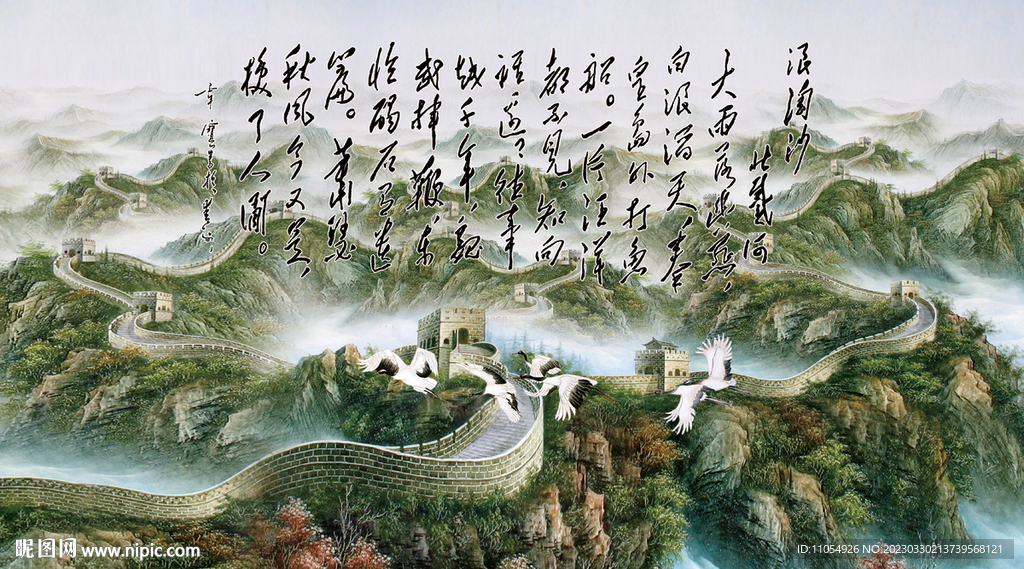 浪淘沙
北戴河
大雨落幽燕，
白浪滔天，秦
皇岛外打鱼
船。一片汪洋
都不见，知向
谁边？往事
越千年，魏
武挥鞭，东
临碣石有遗
篇。萧瑟
秋风今又是，
换了人间。
昵图网 www.nipic.com
ID:11054926 NO.20230330213739568121